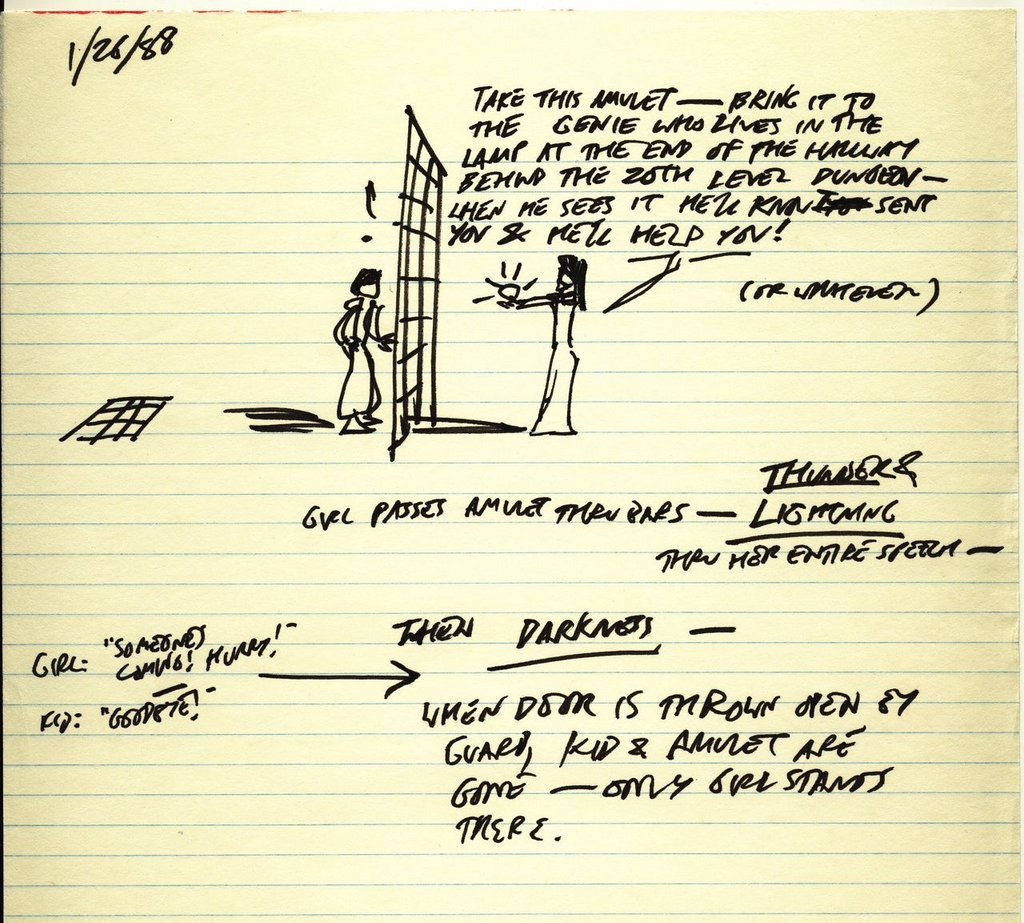 1/26/88
TAKE THIS AMULET — BRING IT TO
THE GENIE WHO LIVES IN THE
LAMP AT THE END OF THE HALLWAY
BEHIND THE 20TH LEVEL DUNGEON —
WHEN HE SEES IT HE'LL KNOW I SENT
YOU & HE'LL HELP YOU!
(OR WHATEVER)
!
GIRL PASSES AMULET THRU BARS — THUNDER &
LIGHTNING
THRU HER ENTIRE SPEECH —
GIRL: "SOMEONE'S
COMING! HURRY!"
KID: "GOODBYE!"
THEN DARKNESS —
WHEN DOOR IS THROWN OPEN BY
GUARD, KID & AMULET ARE
GONE — ONLY GIRL STANDS
THERE.